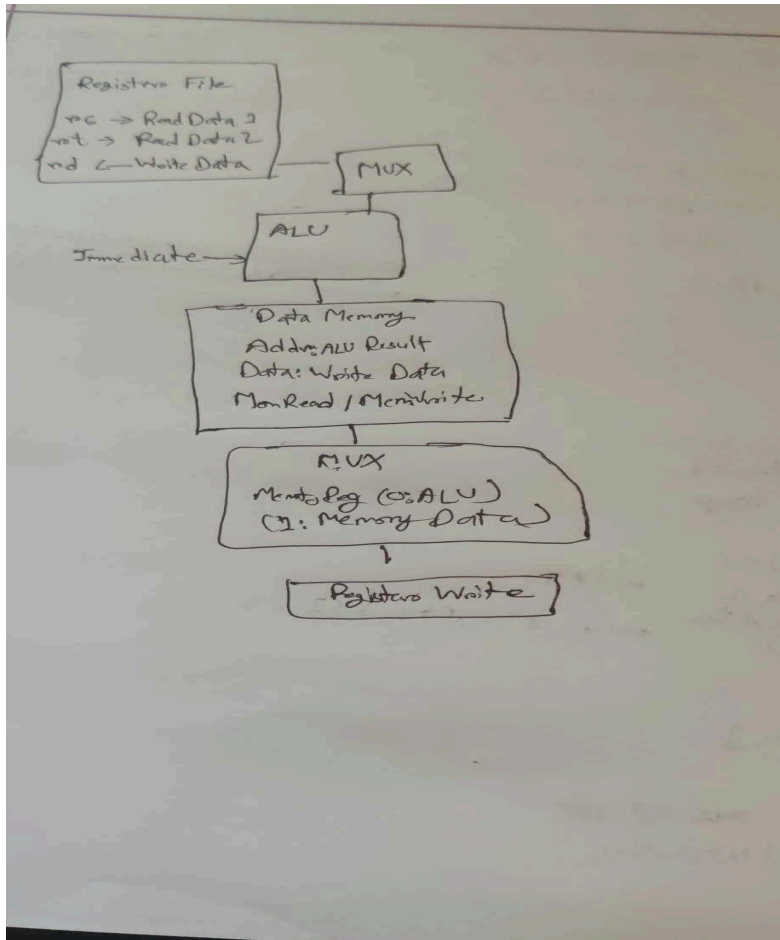 Registero File
rc → Read Data 1
rot → Read Data 2
rd ← Write Data
MUX
ALU
Immediate →
Data Memory
Addr: ALU Result
Data: Write Data
MemRead / MemWrite
MUX
MemtoReg (0: ALU)
(1: Memory Data)
Registero Write